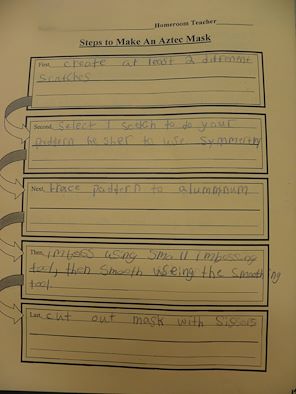 Homeroom Teacher
Steps to Make An Aztec Mask
First, create at least 2 different
scatches
Second, Select 1 sectch to do your
paddern be sher to use Symmertry
Next, trace paddern to aluminum
Then, imboss using small imbossing
tool, then smooth useing the smoothing
tool.
Last, cut out mask with Sissors